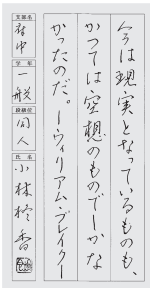 今は現実となっているものも、
かつては空想のものでしかな
かったのだ。ーウィリアム・ブレイクー
支部名
府中
学年
一般
段級位
同人
氏名
小林
香